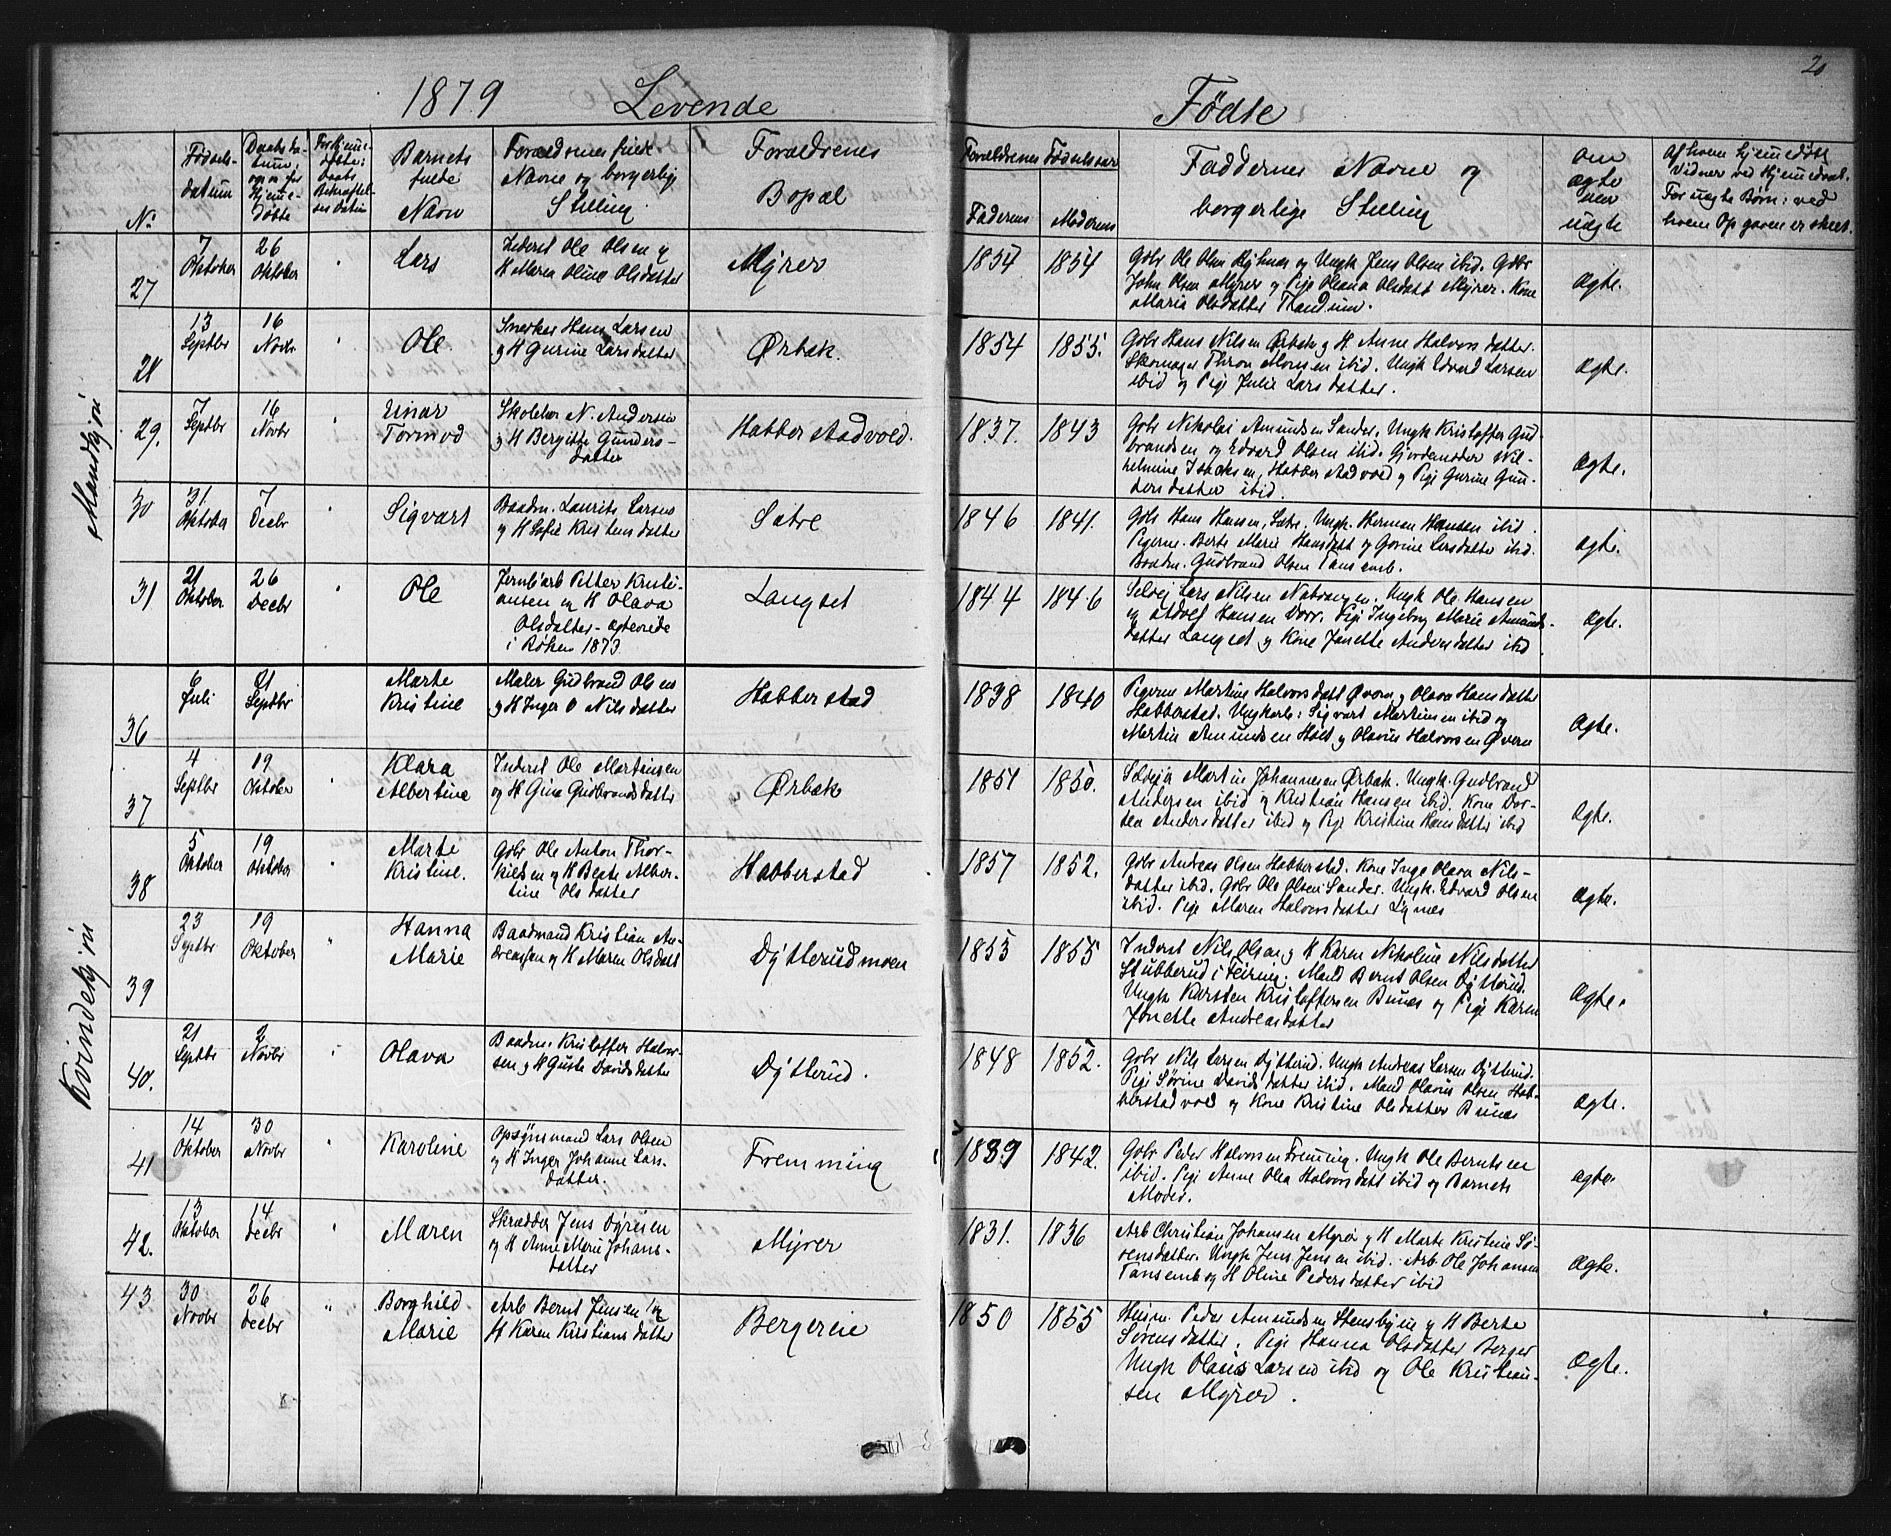 20
1879 Levende Fødte
No.
Fødsels-
datum
Daabsda-
tum,
Hjemme-
døbte
Barnets
fulde
Navn
Forældrenes fulde
Navne og borgerlig
Stilling
Forældrenes
Bopæl
Forældrenes Fødselsaar
Faderens
Moderens
Faddernes Navne og
borgerlige Stilling
om
ægte
eller
uægte
Af hvem hjemmedøbt
Vidner ved Hjemmedaab.
For uægte Børn: ved
hvem Opgaven er skeet.
Mandkjøn
27
7
Oktober
26
Oktober
Lars
Inderst Ole Olsen og
H Maria Oline Olsdatter
Myrer
1854
1854
Gbr Ole Olsen og Ungk Jens Olsen ibid. Gbr
John Olsen Myrer og Pige Oleana Olsdatt Myrer. Kone
Maria Olsdatter Trandum.
ægte.
28
13
Septbr
16
Novbr
Ole.
Snerker Hans Larsen
og H Gurine Larsdatter
Ørbæk.
1854
1855.
Gbr Hans Nilsen Ørbæk og H. Anne Halvorsdatter.
Skomager Thron Monsen ibid. Ungk Edvard Larsen
ibid og Pige Julie Larsdatter.
ægte.
29.
7
Septbr
16
Novbr
Einar
Tormod
Skolelær N. Andersen
og H Bergitte Gunders-
datter
Habberstadvold.
1837.
1843
Gbr Nikolai Amundsen Sander. Ungk Kristoffer Gud-
brandsen og Edvard Olsen ibid. Gjordemoder Wil-
helmine Isaksen, Habberstadvold og Pige Gurine Gun-
dersdatter ibid.
ægte.
30
31.
Oktober
7
Decbr
Sigvart
Baadm. Laurits Larsen
og H Sofie Kristensdatter
Sætre
1846
1841.
Gbr Hans Hansen, Sætre. Ungk. Herman Hansen ibid.
Pigerne. Berte Marie Hansdatt og Gorine Larsdatter ibid.
Baadm. Gudbrand Olsen Tansemb.
ægte.
31
21
Oktober
26
Decbr
Ole
Jernb.arb Petter Kristi-
ansen og H Olava
Olsdatter - ægteviede
i Røken 1873.
Langset
1844
1846
Selvej Lars Nilsen. Ungk Ole Hansen
og Adolf Hansen Dorr. Pige Ingeborg Marie Amunds-
datter Langset og Kone Janette Andersdatter ibid.
ægte.
Kvindekjøn
36
6
Juli
21
Septbr
Marte
Kristine
Maler Gudbrand Olsen
og H Inger O Nilsdatter
Habberstad
1838
1840
Pigerne Martine Halvorsdatt Øvern og Olava Hansdatter
Habberstad. Ungkarle: Sigvart Martinsen ibid og
Martin Amundsen Holt og Olavus Halvorsen Øvern
ægte.
37
4
Septbr
19
Oktober
Klara
Albertine
Inderst Ole Martinsen
og H Gina Gudbrandsdatter
Ørbæk
1851
1850.
Selvejer Martin Johannesen Ørbæk. Ungk. Gudbrand
Andersen ibid og Kristian Hansen ibid. Kone Dor-
tea Andersdatter ibid og Pige Kristine Hansdatter ibid
ægte.
38
5
Oktober
19
Oktober
Marte
Kristine.
Gbr Ole Anton Thor-
kildsen og H Berte Alber-
tine Olsdatter
Habberstad
1857
1852.
Gbr Andreas Olsen Habberstad. Kone Inge Olava Nils-
datter ibid. Gbr Ole Olsen Sander. Ungk. Edvard Olsen
ibid. Pige Maren Halvorsdatter Lynæs
ægte.
39
23
Septbr
19
Oktober
Hanna
Marie
Baadmand Kristian An-
dreassen og H Maren Olsdatt
Dytterudmoen
1853
1855
Inderst Nils Olsen og H Karen Nikoline Nilsdatter
Stubberud i Feiring. Mand Bernt Olsen Dytterud.
Ungk Karsten Kristoffersen Bunæs og Pige Karen
Jonette Andreasdatter
ægte.
40.
21
Septbr
2
Novbr
Olava
Baadm. Kristoffer Halvor-
sen og H Guste Davidsdatter
Dytterud.
1848
1852.
Gbr Nils Larsen Dytterud. Ungk Andreas Larsen Dytterud.
Pige Sørine Davidsdatter ibid. Mand Olavus Olsen Hab-
berstadvold og Kone Kristine Olsdatter Bunæs
ægte.
41
14
Oktober
30
Novbr
Karoline
Opsynsmand Lars Olsen
og H Inger Johanne Lars-
datter.
Fremming
1839
1842.
Gbr Peder Halvorsen Fremming. Ungk Ole Berntsen
ibid. Pige Anne Olea Halvorsdatt ibid og Barnets
Moder.
ægte.
42.
13
Oktober
14
Decbr
Maren
Skrædder Jens Syversen
og H Anne Marie Johans-
datter
Myrer
1831.
1836
Arb Christian Johansen Myrer og H Marte Kristine Sø-
rensdatter. Ungk Jens Jensen ibid. Arb. Ole Johansen
Tansemb og H Oline Pedersdatter ibid
ægte.
43
30
Novbr
26
Decbr
Borghild
Marie
Arb Bernt Jensen og
H Karen Kristiansdatter
Bergereie
1850
1855
Husm. Peder Amundsen Stensbyeie og H Berte
Sørensdatter. Pige Hanna Olsdatter Berger
Ungk Olaus Larsen ibid og Ole Kristian-
sen Myrer.
ægte.